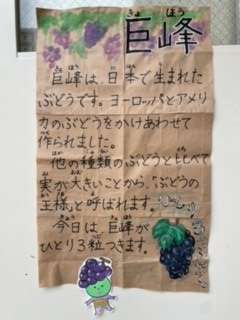 巨峰
きょ ほう
巨峰は、日本で生まれた
ぶどうです。ヨーロッパとアメリ
カのぶどうをかけあわせて
作られました。
他の種類のぶどうと比べて
実が大きいことから、「ぶどうの
王様」と呼ばれます。
今日は、巨峰が
ひとり3粒つきます。